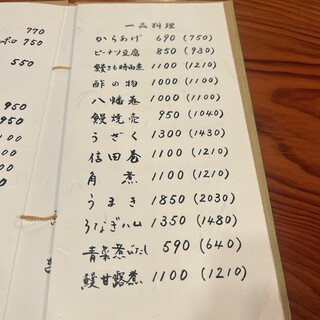 770
750
550
950
950
00
00
00
一品料理
からあげ 690 (750)
ピーナツ豆腐 850 (930)
鰻きも時雨煮 1100 (1210)
酢の物 1000 (1100)
八幡巻 1000 (1100)
鰻焼売 950 (1040)
うざく 1300 (1430)
信田巻 1100 (1210)
角煮 1100 (1210)
うまき 1850 (2030)
うなぎハム 1350 (1480)
青菜煮びたし 590 (640)
鰻甘露煮 1100 (1210)